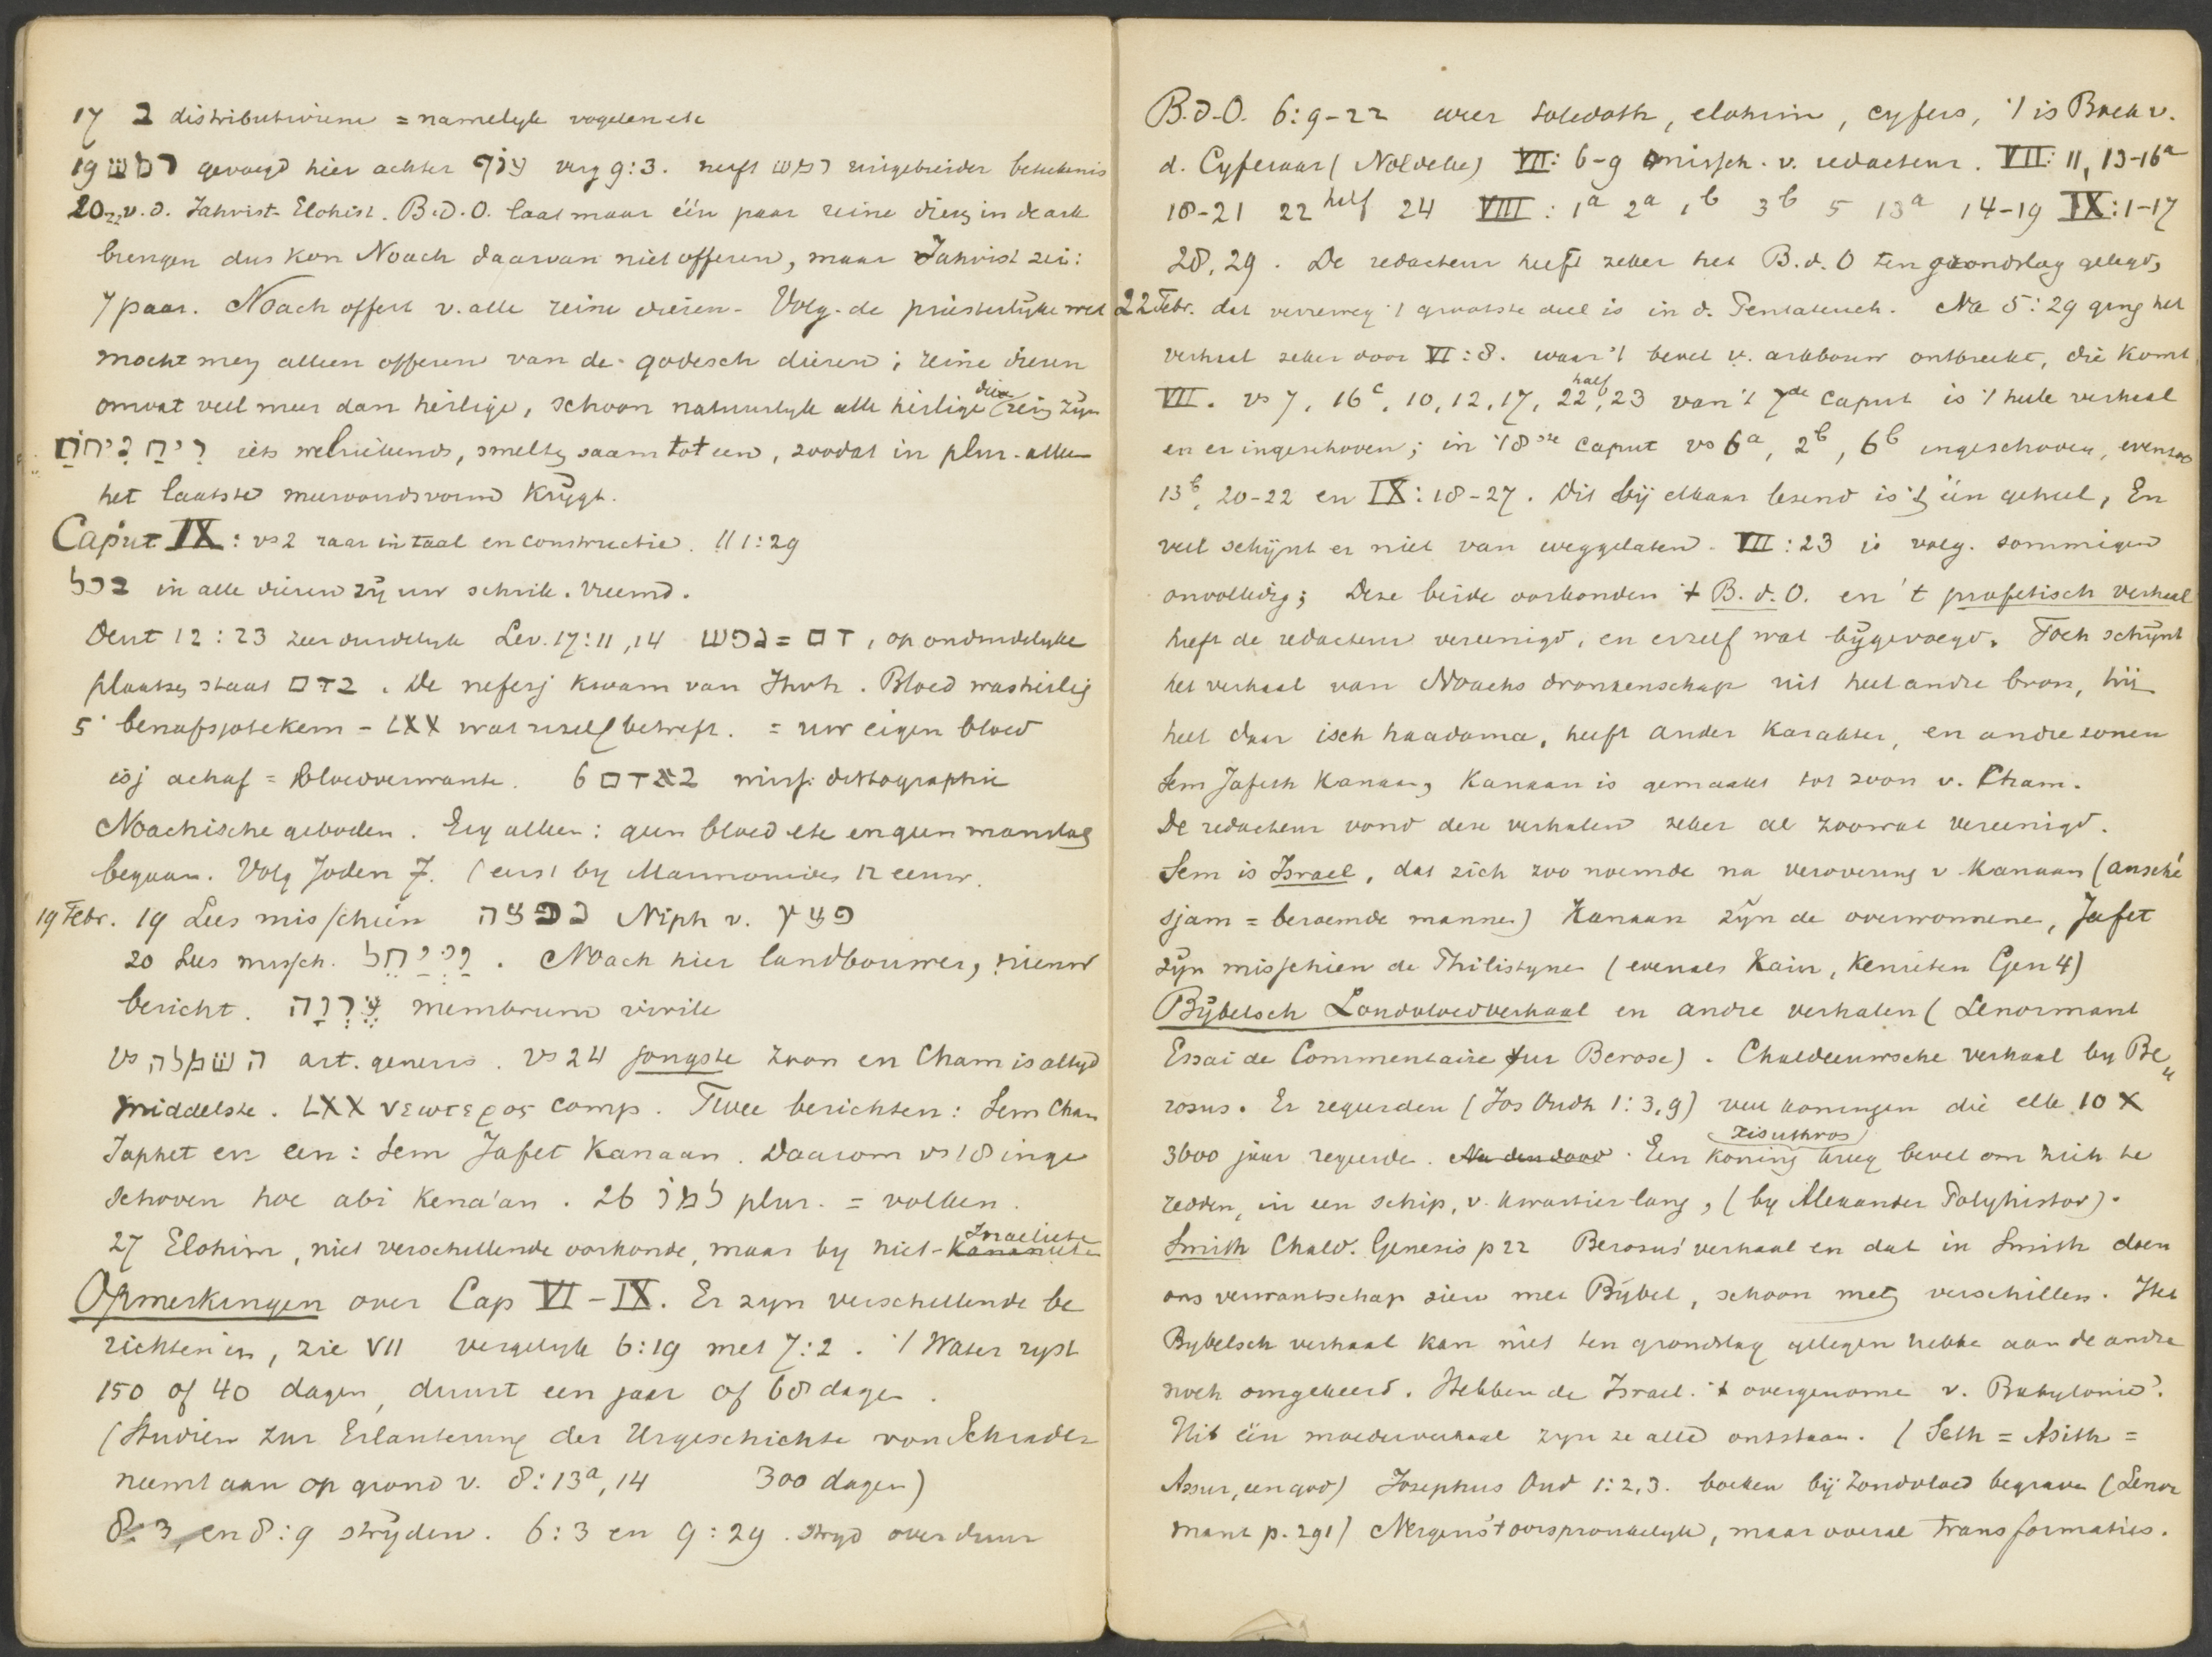 17 ב distributivum = namelyk vogelen etc
19 רמש gevoegd hier achter עוף verg 9:3. heeft רמש uitgebreider beteekenis
20-22 v. d. Jahvist-Elohist. B.d.O. laat maar één paar reine dieren in de ark
brengen dus kon Noach daarvan niet offeren, maar Jahvist zei:
7 paar. Noach offert v. alle reine dieren - Volg. de priesterlyke wet
mocht men alleen offeren van de godesch dieren; reine dieren
omvat veel meer dan heilige, schoon natuurlyk alle heilige dier rein zyn
רֵיחַ נִיחֹחַ iets welriekends, smelten saam tot een, zoodat in plur. alleen
het laatste meervoudsvorm krygt.
Caput IX: vs 2 raar in taal en constructie. // 1:29
בכל in alle dieren zy uw schrik. Vreemd.
Deut 12:23 zeer duidelyk Lev. 17:11,14 נפש = דם, op onduidelyke
plaatsen staat בדם. De nefesj kwam van Jhvh. Bloed was heilig
5 benafsjotekem - LXX wat uzelf betreft. = uw eigen bloed
isj achaf = bloedverwante. 6 באדם missch. dittographie
Noachische geboden. Erg alleen: geen bloed ete en geen manslag
begaan. Volg Joden 7. (eerst by Maimonides 12 eeuw.
19 Febr. 19 Lees misschien נפצה Niph v. פצץ
20 Lees missch. וַיָּחֶל. Noach hier landbouwer, nieuw
bericht. עֶרְוָה membrum virile
vs השמלה art. generis. vs 24 jongste zoon en Cham is altyd
middelste. LXX νεωτερος comp. Twee berichten: Sem Cham
Japhet en een: Sem Jafet Kanaan. Daarom vs 18 inge
schoven hoe abi Kena'an. 26 למו plur. = volken.
27 Elohim, niet verschillende oorkonde, maar by niet-Kananiete Israeliete
Opmerkingen over Cap VI-IX. Er zyn verschillende be
richten in, zie VII vergelyk 6:19 met 7:2. 't Water ryst
150 of 40 dagen, duurt een jaar of 68 dagen.
(Studien zur Erlauterung der Urgeschichte von Schrader
neemt aan op grond v. 8:13a, 14 300 dagen)
8:3 en 8:9 stryden. 6:3 en 9:29. stryd over duur
B.d.O. 6:9-22 weer toledoth, elohim, cyfers, 't is Boek v.
d. Cyferaar (Nöldeke) VII: 6-9 missch. v. redacteur. VII: 11, 13-16a
18-21 22 half 24 VIII: 1a 2a 1b 3b 5 13a 14-19 IX: 1-17
28, 29. De redacteur heeft zeker het B.d.O ten grondslag gelegd,
22 Febr. dat verreweg 't grootste deel is in d. Pentateuch. Na 5:29 ging het
verhaal zeker door VI:8. waar 't bevel v. arkbouw ontbreekt, die komt
VII. vs 7, 16c, 10, 12, 17, 22 half, 23 van 't 7de caput is 't heele verhaal
en er ingeschoven; in '8ste caput vs 6a, 2b, 6b ingeschoven, evenzoo
13b, 20-22 en IX: 18-27. Dit bij elkaar lezend is 't één geheel, En
veel schijnt er niet van weggelaten. VII:23 is volg. sommigen
onvolledig; Deze beide oorkonden 't B.d.O. en 't profetisch verhaal
heeft de redacteur vereenigd, en erzelf wat bygevoegd. Toch schynt
het verhaal van Noachs dronkenschap uit heel andre bron, hij
heet daar isch haadama, heeft ander karakter, en andre zonen
Sem Jafeth Kanaan, Kanaan is gemaakt tot zoon v. Cham.
De redacteur vond deze verhalen zeker al zoowat vereenigd.
Sem is Israel, dat zich zoo noemde na verovering v Kanaan (ansché
sjam = beroemde mannen) Kanaan zyn de overwonnene, Jafet
zyn misschien de Philistynen (evenals Kain, Kenieten Gen 4)
Bybelsch Zondvloedverhaal en andre verhalen (Lenormant
Essai de Commentaire sur Berose). Chaldeeuwsche verhaal by Be„
rosus. Er regeerden (Jos Oudh 1:3,9) veel koningen die elk 10 X
3600 jaar regeerde. Na den dood. Een koning xisuthros kreeg bevel om zich te
redden, in een schip, v. kwartier lang, (by Alexander Polyhistor).
Smith Chald. Genesis p 22 Berosus' verhaal en dat in Smith doen
ons verwantschap zien met Bybel, schoon met verschillen. Het
Bybelsch verhaal kan niet ten grondslag gelegen hebbe aan de andre
noch omgekeerd. Hebben de Israel. 't overgenome v. Babylonie?
Uit één moederverhaal zyn ze alle ontstaan. (Seth = Asith =
Assur, een god) Josephus Oud 1:2,3. boeken bij Zondvloed begrave (Lenor
mant p. 291) Nergens 't oorspronkelyk, maar overal transformaties.